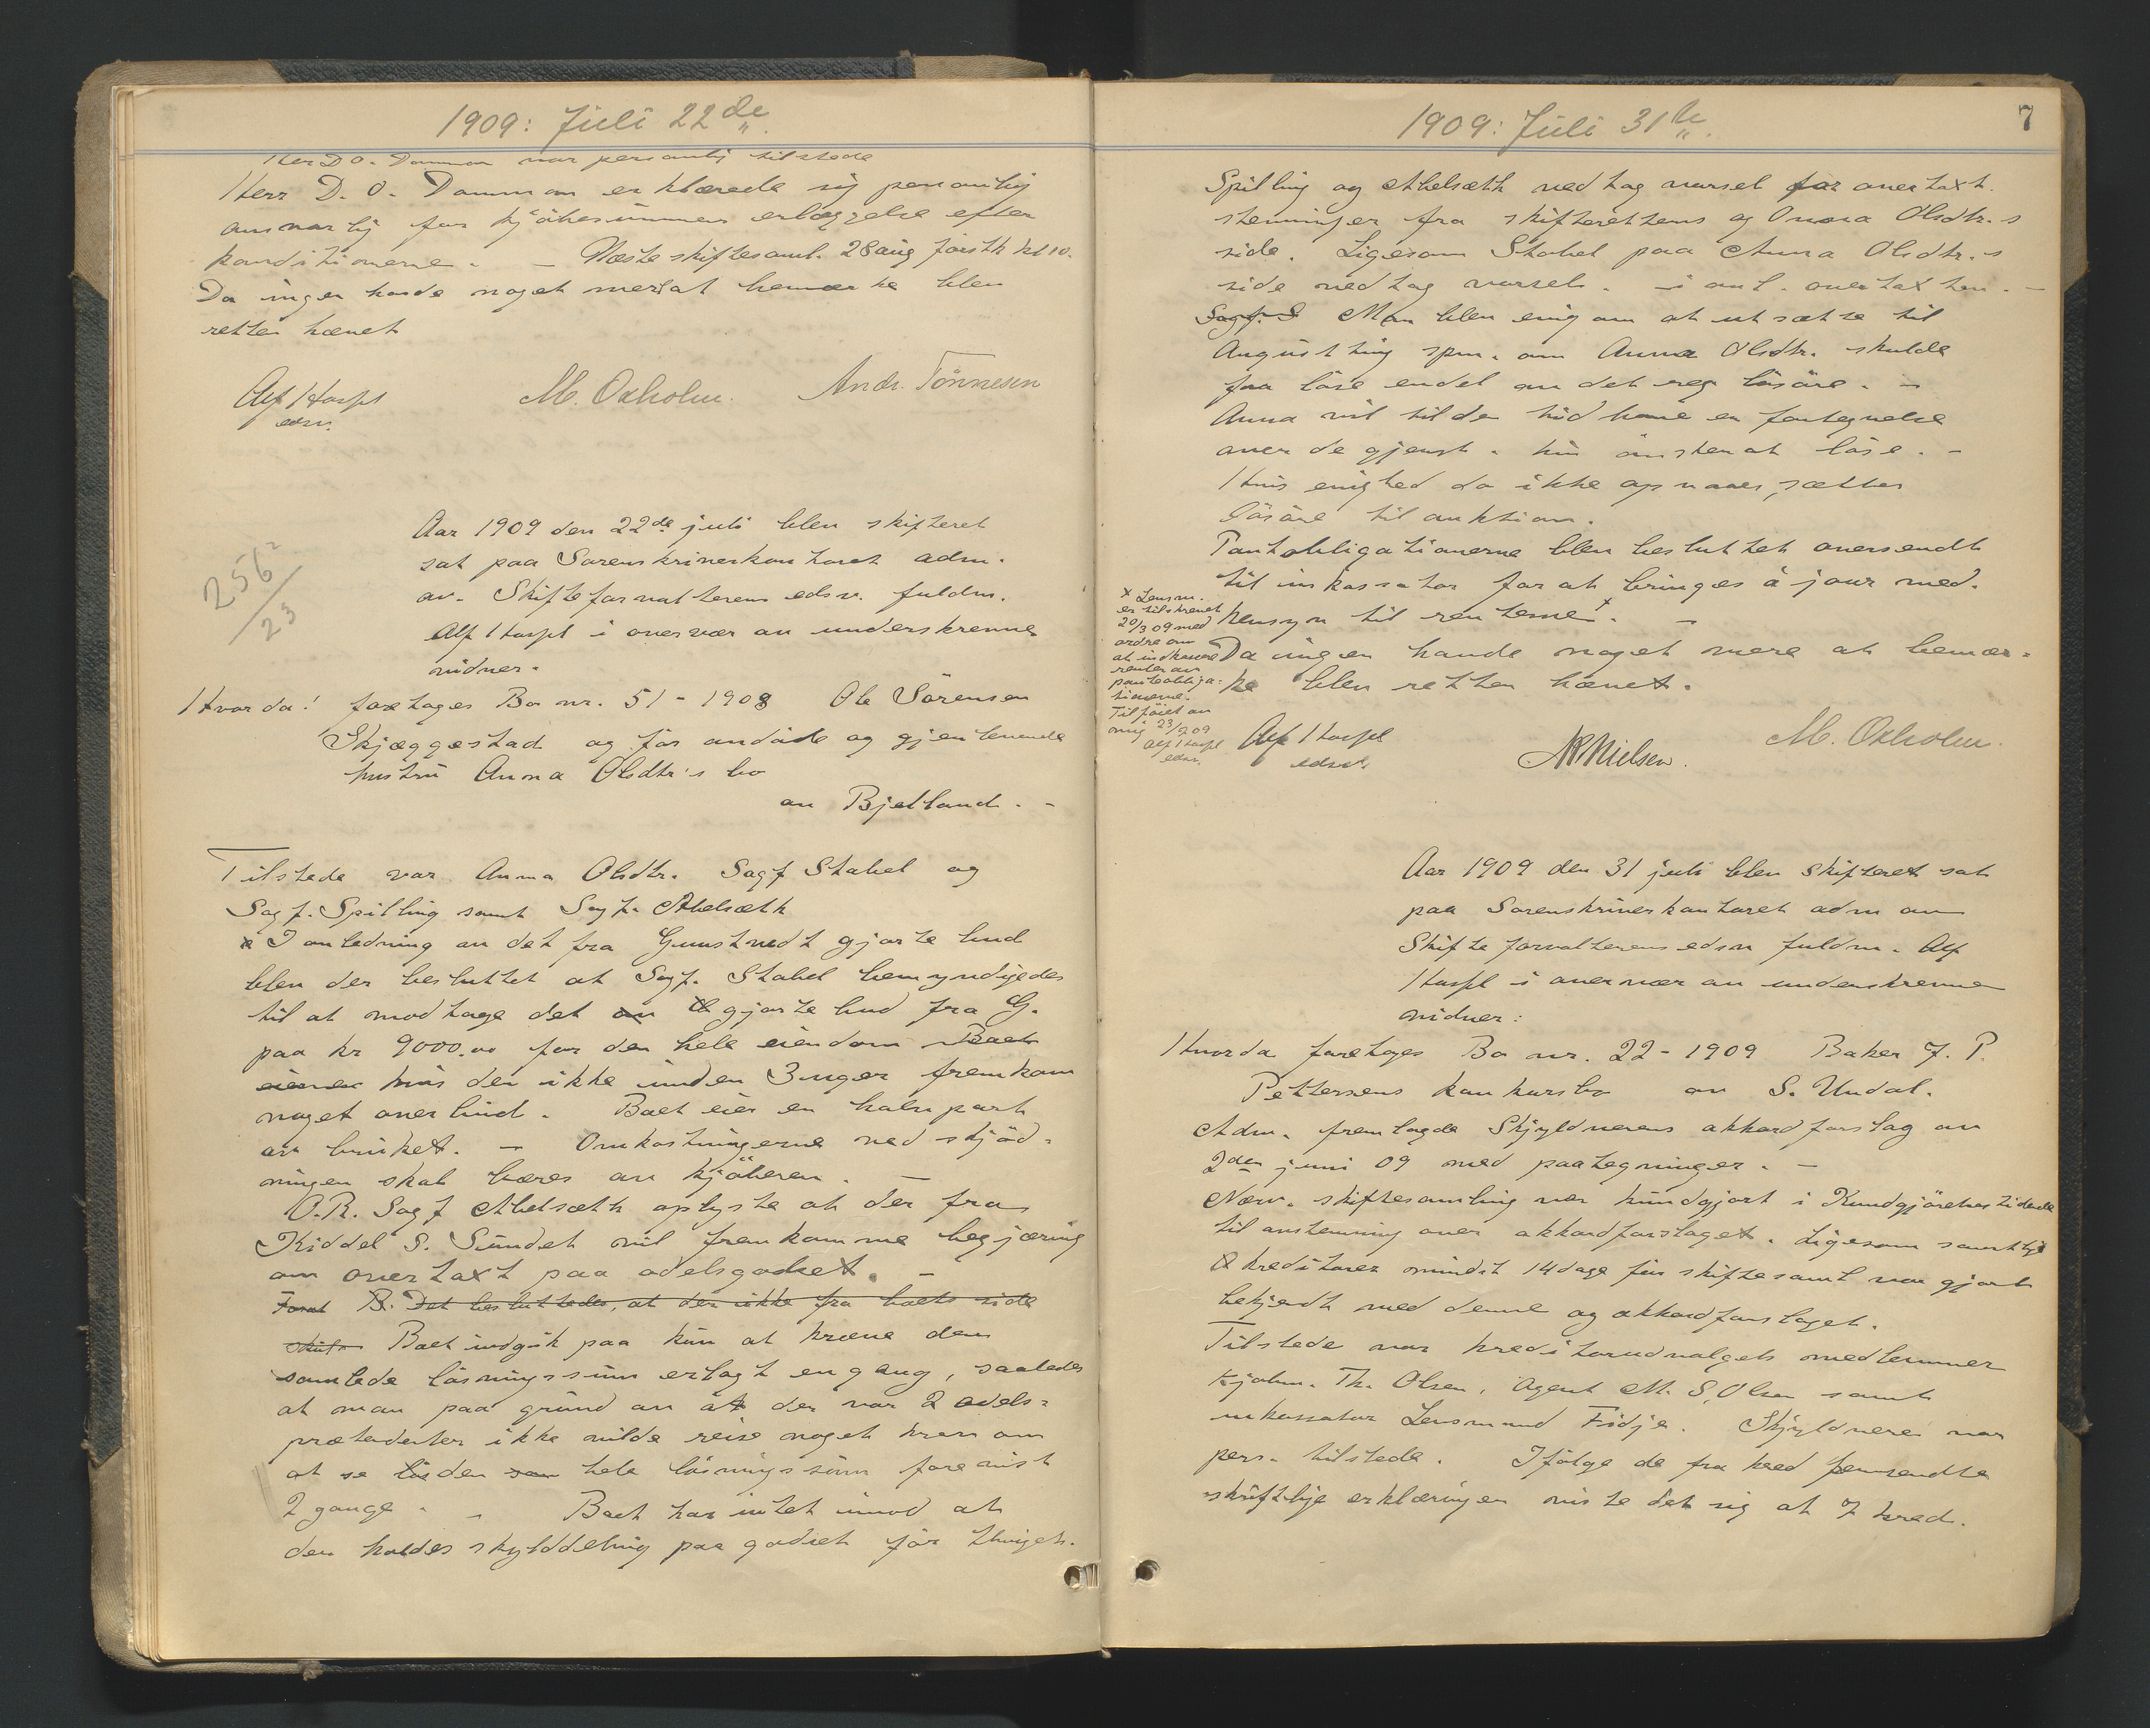 1909: Juli 22de
Herr D. O. Damman var personlig tilstede
Herr D. O. Damman erklærede sig personlig
ansvarlig for kjöbesummens erlæggelse efter
konditionerne. — Næste skiftesaml. 28 aug förstk kl 10.
Da ingen havde noget mer at bemærke blev
retten hævet
Alf Harpt
edsv.
M. Oxholm.
Andr. Tönnesen
256²/23
Aar 1909 den 22de juli blev skifteret
sat paa Sorenskriverkontoret adm.
av. Skifteforvalterens edsv. fuldm.
Alf Harpt i overvær av underskrevne
vidner.
Hvorda! foretoges Bo nr. 51 - 1908 Ole Sörensen
Skjæggestad og för avdöde og gjenlevende
hustru Anna Olsdtr's bo
av Bjelland. -
Tilstede var Anna Olsdtr. Sagf Stabel og
Sagf. Spilling samt Sagf. Abelsæth
I anledning av det fra Gunstvedt gjorte bud
blev der besluttet at Sagf. Stabel bemyndigedes
til at modtage det av G gjorte bud fra G.
paa kr 9000.00 for den hele eiendom Boet
eiener hvis der ikke inden 3 uger fremkom
noget overbud. Boet eier en halvpart
av bruket. — Omkostningerne ved skjöd-
ningen skal bæres av kjöberen.
O.R. Sagf Abelsæth oplyste at der fra
Kiddel S. Sundet vil fremkomme begjæring
om overtaxt paa odelsgodset. —
B. Det besluttedes, at der ikke fra boets side
skulde Boet indgik paa kun at kræve den
samlede lösningssum erlagt en gang, saaledes
at man paa grund av at der var 2 odels-
prætendenter ikke vilde reise noget krav om
at se lös den som hele lösningssum forevist
2 gange. - Boet har intet imod at
der holdes skylddeling paa godset för thinget.
1909: Juli 31te
7
Spilling og Abelsæth vedtog varsel for overtaxt.
stevninger fra skifterettens og Anna Olsdtr.s
side. Ligesom Stabel paa Anna Olsdtr.s
side vedtog varsel. i anl. overtaxten. —
Sagf. S Man blev enig om at utsætte til
Augustting spm. om Anna Olsdtr. skulde
faa löse endel av det reg lösöre. —
Anna vil til den tid have en fortegnelse
over de gjenst. hun önsker at löse. -
Hvis enighed da ikke opnaaes, sættes
lösöre til auktion.
Pantobligationerne blev besluttet oversendt
til inkassator for at bringes à jour med.
hensyn til renterne.x —
x Lensm.
er tilskrevet
20/3 09 med
ordre om
at indkassere
renter av
panteobliga-
tionerne.
Tilföiet av
mig 23/7 09
Alf Harpt
edsv.
Da ingen havde noget mere at bemær-
ke blev retten hævet.
Alf Harpt
edsv.
NPNielsen.
M. Oxholm.
Aar 1909 den 31 juli blev skifteret sat
paa Sorenskriverkontoret adm av
Skifteforvalterens edsv fuldm. Alf
Harpt i overvær av underskrevne
vidner:
Hvorda foretoges Bo nr. 22 - 1909 Baker J. P.
Pettersens konkursbo av S. Undal.
Adm. fremlagde Skyldnerens akkordforslag av
2den juni 09 med paategninger. —
Nærv. skiftesamling var kundgjort i Kundgjörelses tidende
til avstemning over akkordforslaget. Ligesom samtlige
kreditorer mindst 14 dage för skiftesaml var gjort
bekjendt med denne og akkordforslaget.
Tilstede var kreditorudvalgets medlemmer
Kjøbm. Th. Olsen, Agent M. S. Olsen samt
inkassator Lensmand Fidje. Skyldneren var
pers. tilstede. Ifölge de fra kred fremsendte
skriftlige erklæringer viste det sig at 7 kred.